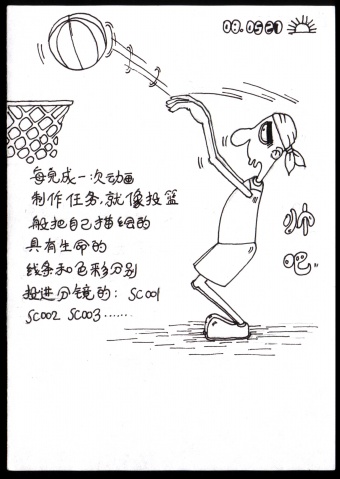 08.0521
每完成一次动画
制作任务,就像投篮
般把自己描绘的
具有生命的
线条和色彩分别
投进分镜的: SC001
SC002 SC003......
帅
吧